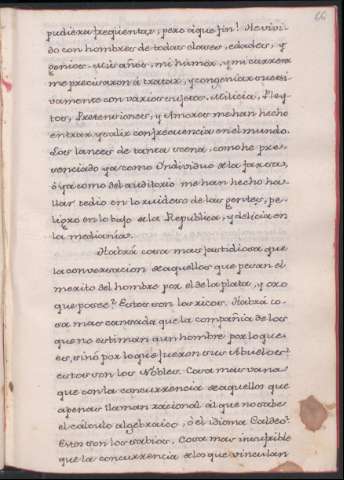 66
pudiera freqüentar, pero à que fin? He vivi-
do con hombres de todas clases, edades, y
genios. Mis años, mi humor, y mi carrera
me precisaron à tratar, y congeniar succesi-
vamente con varios sugetos. Milicia, Pley-
tos, Pretensiones, y Amores me han hecho
entrar y salir con frecuencia en el mundo.
Los lances de tanta scena, como he pre-
senciado ya como Individuo de la farsa,
ò ya como del auditorio me han hecho ha-
llar tedio en lo ruidoso de las gentes, pe-
ligro en lo bajo de la Republica, y delicia en
la medianía.
Habrá cosa mas fastidiosa que
la conversacion de aquellos que pesan el
merito del hombre por el de la plata, y oro
que posee? Estos son los ricos. Habrá co-
sa mas cansada que la compañia de los
que no estiman à un hombre por lo que
es, sinò por lo que fueron sus Abuelos?
estos son los Nobles. Cosa mas vana
que con la concurrencia de aquellos que
apenas llaman racional al que no sabe
el cálculo algebraico, ò el idioma Caldeo?
Estos son los sabios. Cosa mas insufrible
que la concurrencia de los que vinculan